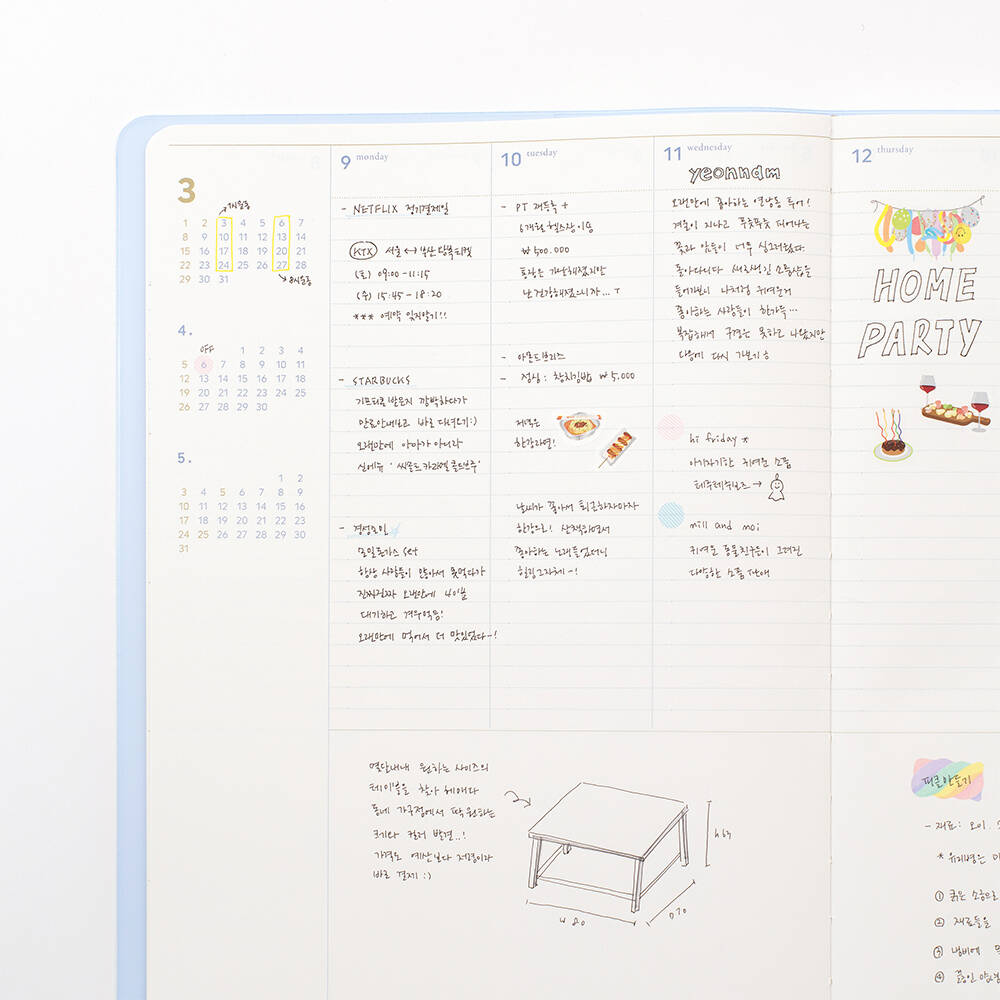 3
7시운동
1 2 3 4 5 6 7
8 9 10 11 12 13 14
15 16 17 18 19 20 21
22 23 24 25 26 27 28
29 30 31
8시운동
4.
OFF
1 2 3 4
5 6 7 8 9 10 11
12 13 14 15 16 17 18
19 20 21 22 23 24 25
26 27 28 29 30
5.
1 2
3 4 5 6 7 8 9
10 11 12 13 14 15 16
17 18 19 20 21 22 23
24 25 26 27 28 29 30
31
9 monday
- NETFLIX 정기결제일
KTX 서울 ↔ 부산 왕복티켓
(토) 09:00 - 11:15
15:45 - 18:20
*** 예약 잊지말기!!
- STARBUCKS
기프티콘받은지 깜박하다가
만료안내나고 바로 다녀오기:)
오랜만에 아아가 아니라
신메뉴 '씨솔트카라멜콜드브루'
- 경성초인
모밀돈가스 set
항상 사람들이 많아서 못먹다가
진짜진짜 오랜만에 40분
대기하고 겨우먹음!
오랜만에 먹어서 더 맛있었다-!
10 tuesday
- PT 재등록 +
6개월 헬스장이용
₩ 600.000
통장은 가난해졌지만
난 건강해졌으니까... T
- 아몬드브리스
- 점심: 참치김밥 ₩5,000
저녁은
한강라면!
날씨가 좋아서 퇴근하자마자
한강으로! 산책하면서
좋아하는 노래들었더니
힐링그자체-!
11 wednesday
yeonnam
오랜만에 좋아하는 연남동 투어!
겨울이 지나고 푸릇푸릇 피어나는
꽃과 잎들이 너무 싱그러웠다.
돌아다니다 새로생긴 소품샵을
들어가보니 나처럼 귀여운거
좋아하는 사람들이 한가득...
복잡해서 구경은 못하고 나왔지만
다음에 다시 가보기 ㅎ
hi friday *
아기자기한 귀여운 소품
테루테루보즈 →
mill and moi
귀여운 동물친구들이 그려진
다양한 소품 판매
12 thursday
HOME
PARTY
몇달내내 원하는 사이즈의
테이블을 찾아 헤매다
동네 가구점에서 딱 원하는
크기와 컬러 발견..!
가격도 예산보다 저렴이라
바로 결제 :)
W 80
D 70
피클만들기
- 재료: 오이.
* 유리병은
① 굵은 소금으로
② 재료들을
③ 냄비에
④ 끓인